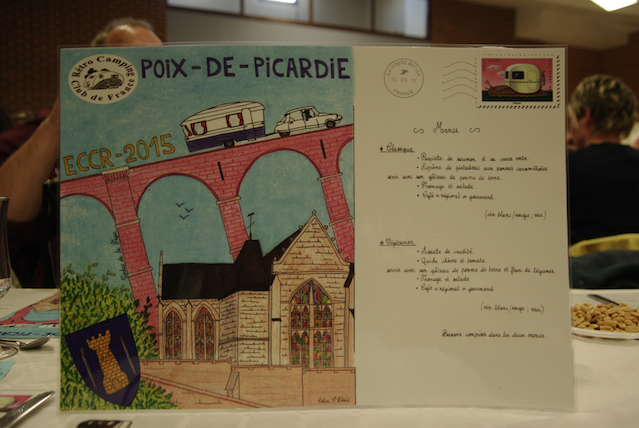 Rétro Camping
Club de France
POIX-DE-PICARDIE
ECCR-2015
LA POSTE
FRANCE
Menu
Classique
• Paupiette de saumon et sa sauce
• Suprême de pintadeau aux pommes caramélisées
servi avec son gâteau de pomme de terre
• Fromage et salade
• Café « régional » gourmand
(vin blanc/rouge ; eau)
Végétarien
• Assiette de crudités
• Quiche chèvre et tomate
servie avec son gâteau de pomme de terre et flan de légumes
• Fromage et salade
• Café « régional » gourmand
(vin blanc/rouge ; eau)
Boissons comprises dans les deux menus.